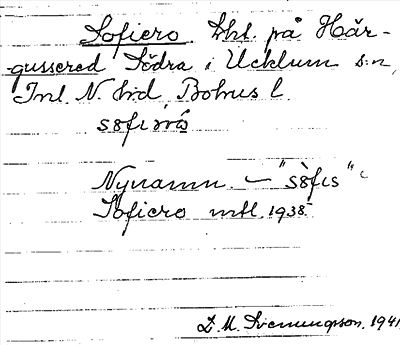 Sofiero. Lht. på Hår-
gussered Södra i Ucklum s:n,
Inl. N. hd, Bohus l.
Nynamn. – "sòfis"
Sofiero mtl. 1938.
Z. M. Svenungsson, 1941